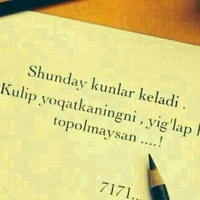 Shunday kunlar keladi .
Kulip yoqatkaningni , yig'lap
topolmaysan ....!
7171...